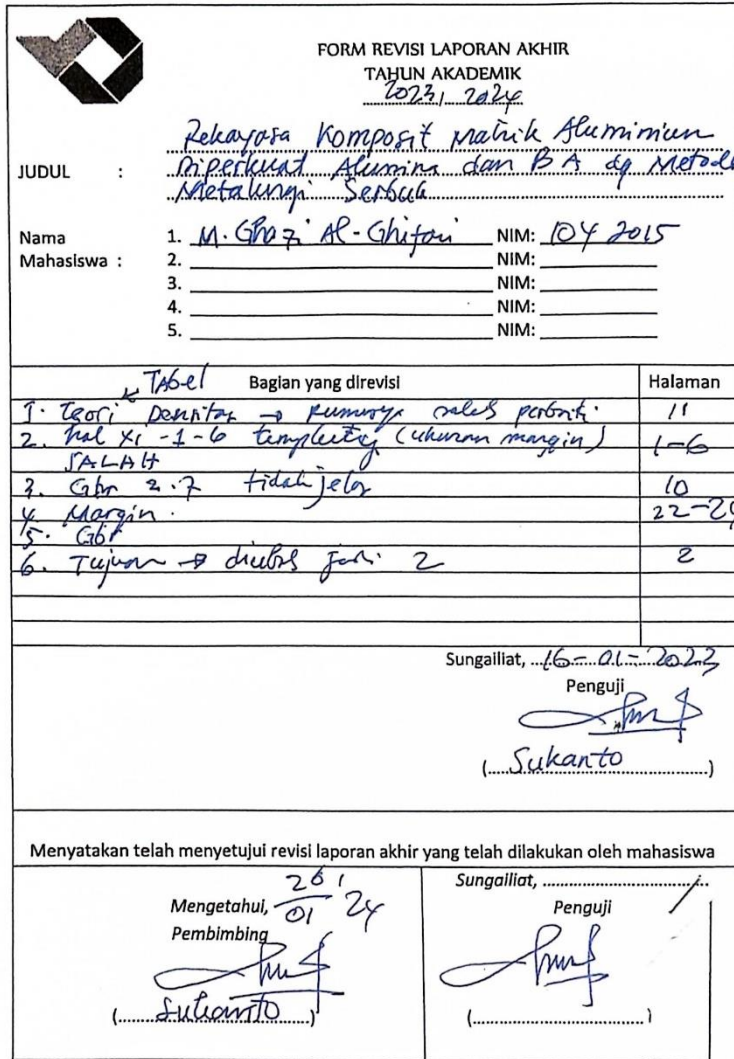 FORM REVISI LAPORAN AKHIR
TAHUN AKADEMIK
2023, 2024
JUDUL :
Rekayasa Komposit Matrik Aluminium
Diperkuat Alumina dan BA dg Metode
Metalurgi Serbuk
Nama
Mahasiswa :
1. M. Ghazi Al-Ghifari NIM: 104 2015
2. NIM:
3. NIM:
4. NIM:
5. NIM:
Tabel
Bagian yang direvisi Halaman
1. Teori Densitas → rumusnya 11
2. hal XI -1-6 (ukuran margin) 1-6
SALAH
3. Gbr 2.7 tidak jelas 10
4. Margin. 22-24
5. Gbr
6. Tujuan → jadi 2 2
Sungailiat, 16-01-2023
Penguji
(Sukanto)
Menyatakan telah menyetujui revisi laporan akhir yang telah dilakukan oleh mahasiswa
Mengetahui, 26/01 24
Pembimbing
(Sukanto)
Sungailiat, /
Penguji
( )